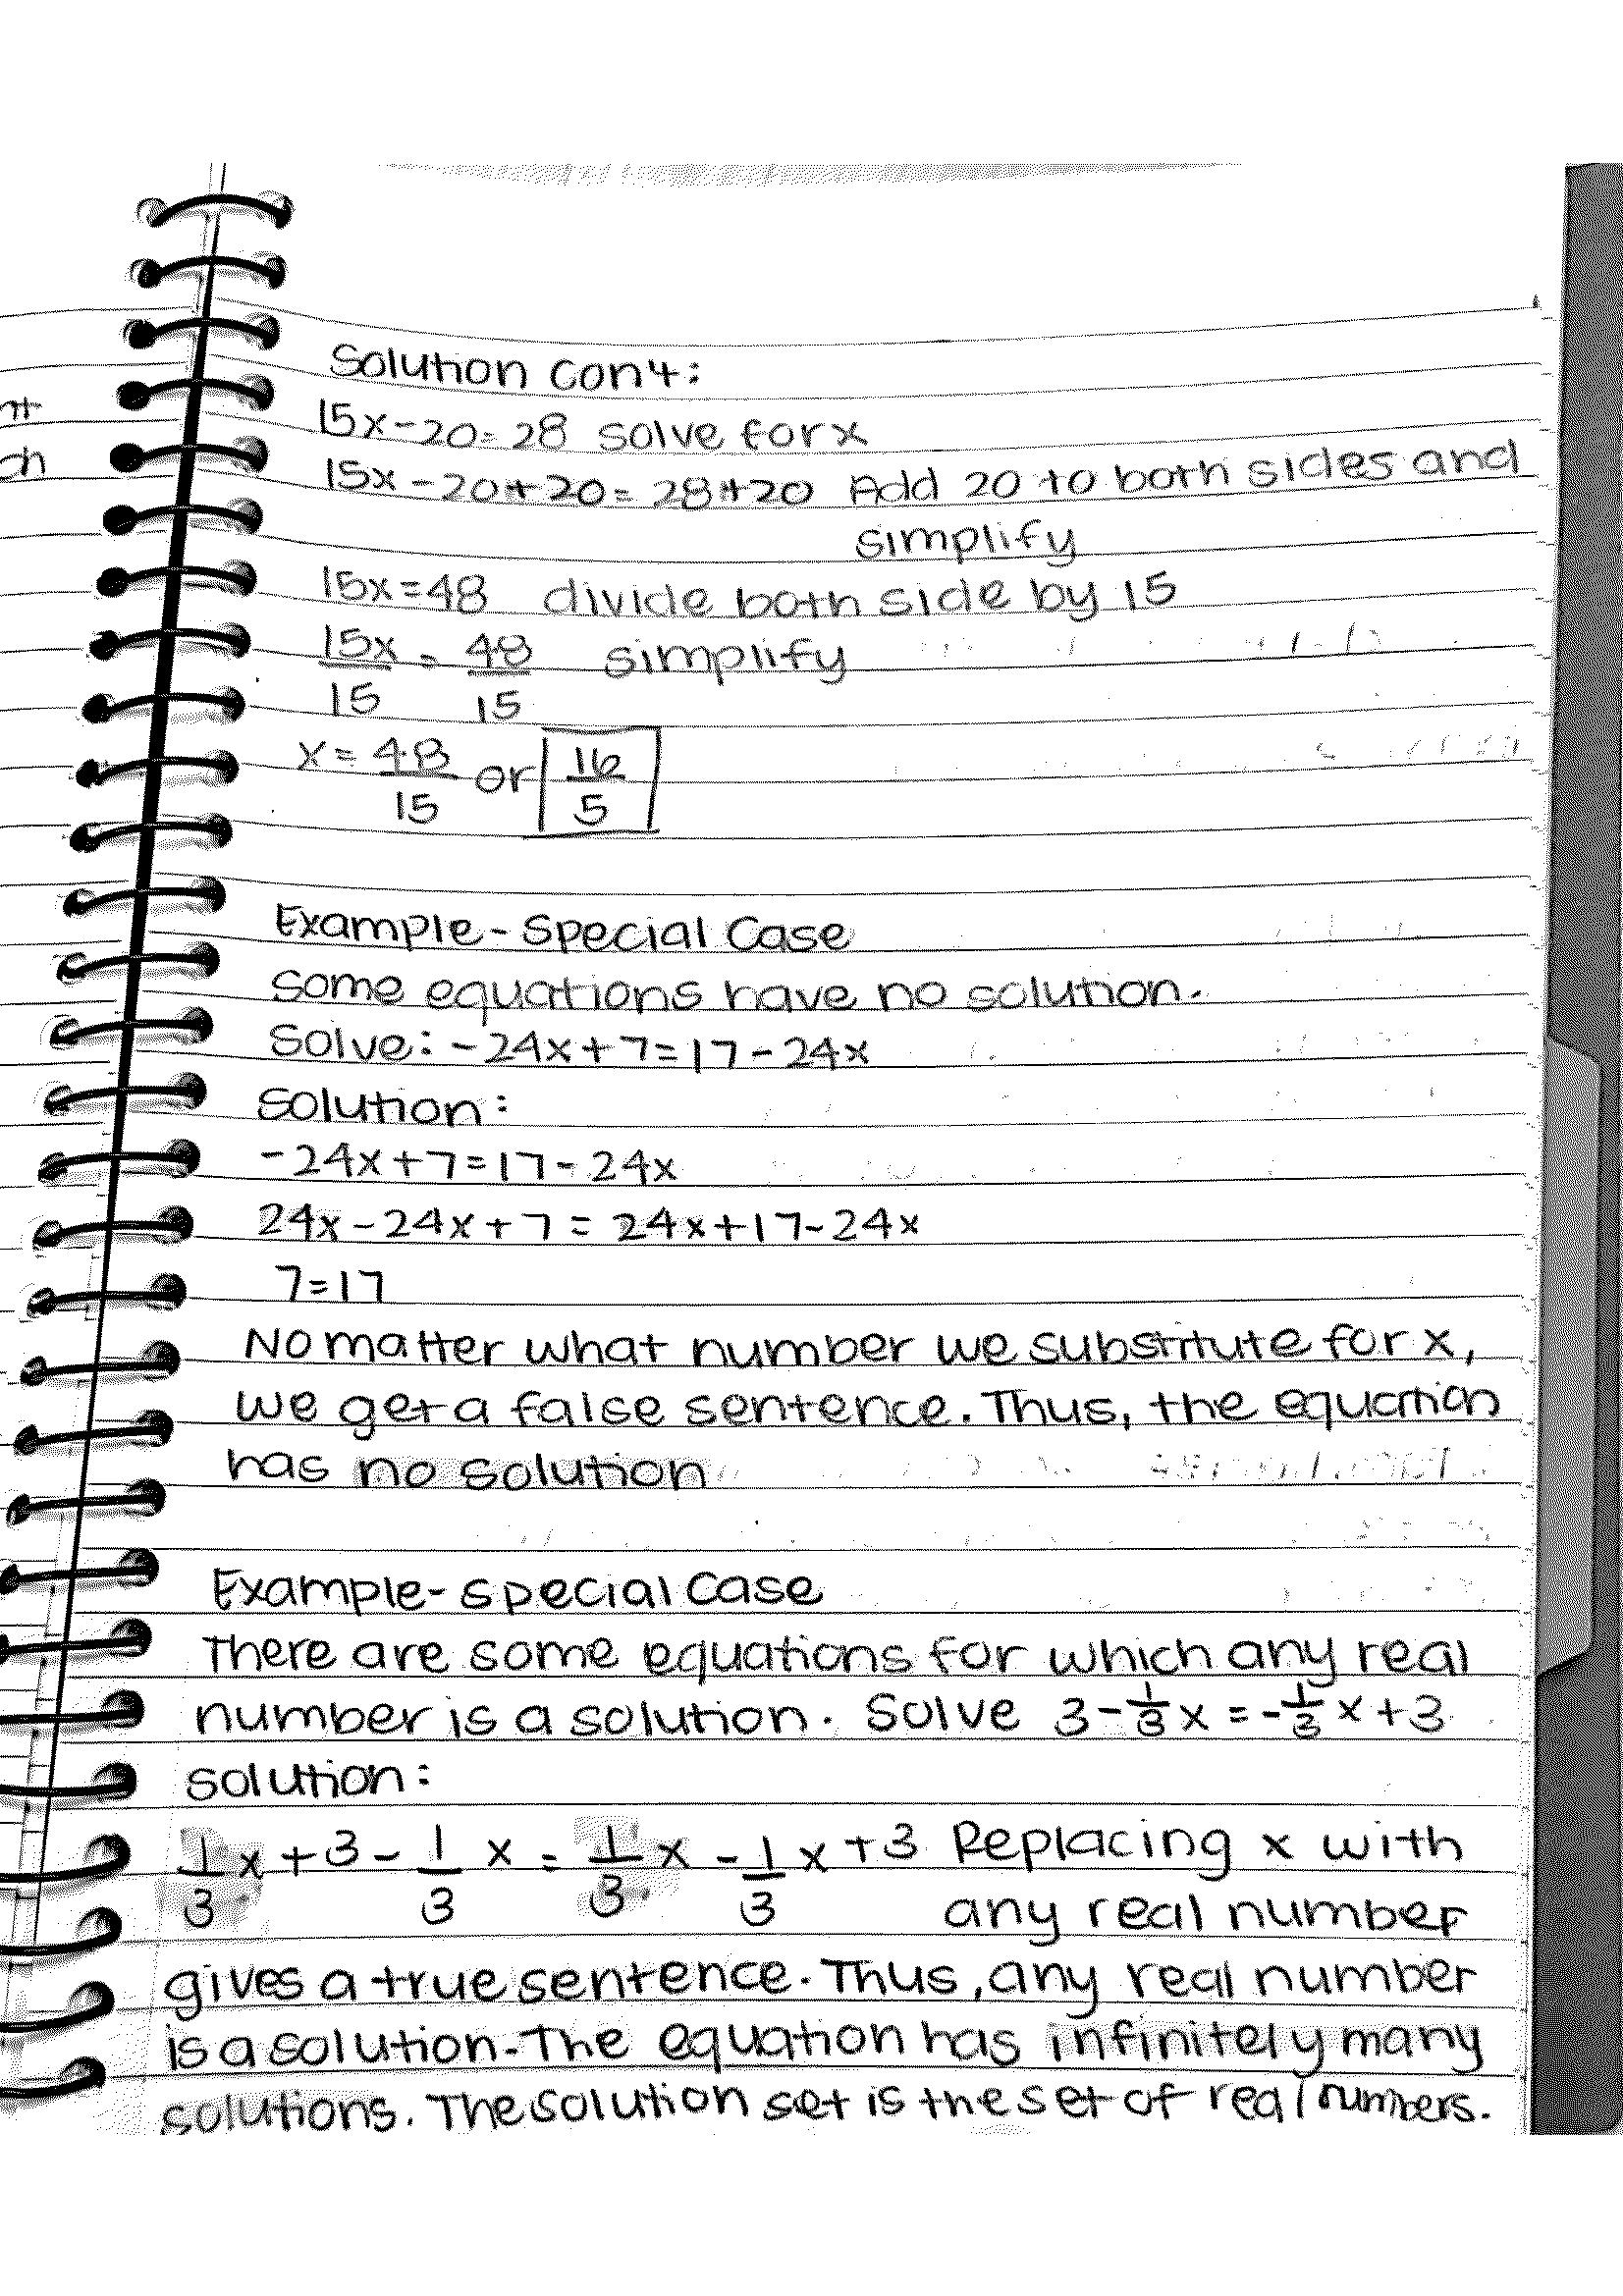 nt
ch
Solution Con't:
15x-20=28 solve for x
15x-20+20=28+20 Add 20 to both sides and
simplify
15x=48 divide both side by 15
15x/15 = 48/15 simplify
x=48/15 or 16/5
Example-Special Case
Some equations have no solution.
Solve: -24x+7=17-24x
Solution:
-24x+7=17-24x
24x-24x+7=24x+17-24x
7=17
No matter what number we substitute for x,
we get a false sentence. Thus, the equation
has no solution
Example-special Case
There are some equations for which any real
number is a solution. Solve 3-1/3x=-1/3x+3
solution:
1/3x+3-1/3x=1/3x-1/3x+3 Replacing x with
any real number
gives a true sentence. Thus, any real number
is a solution. The equation has infinitely many
solutions. The solution set is the set of real numbers.